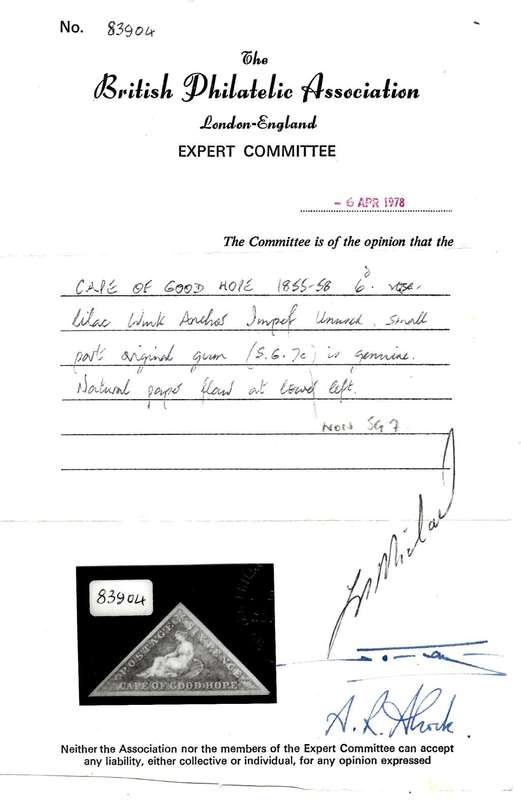 No. 83904
The
British Philatelic Association
London-England
EXPERT COMMITTEE
- 6 APR 1978
The Committee is of the opinion that the
CAPE OF GOOD HOPE 1855-58 6d. rose-
lilac Wmk Anchor Imperf Unused, small
part original gum (S.G. 7c) is genuine.
Natural paper flaw at lower left.
NOW SG 7
83904
POSTAGE SIX PENCE
CAPE OF GOOD HOPE
Neither the Association nor the members of the Expert Committee can accept
any liability, either collective or individual, for any opinion expressed